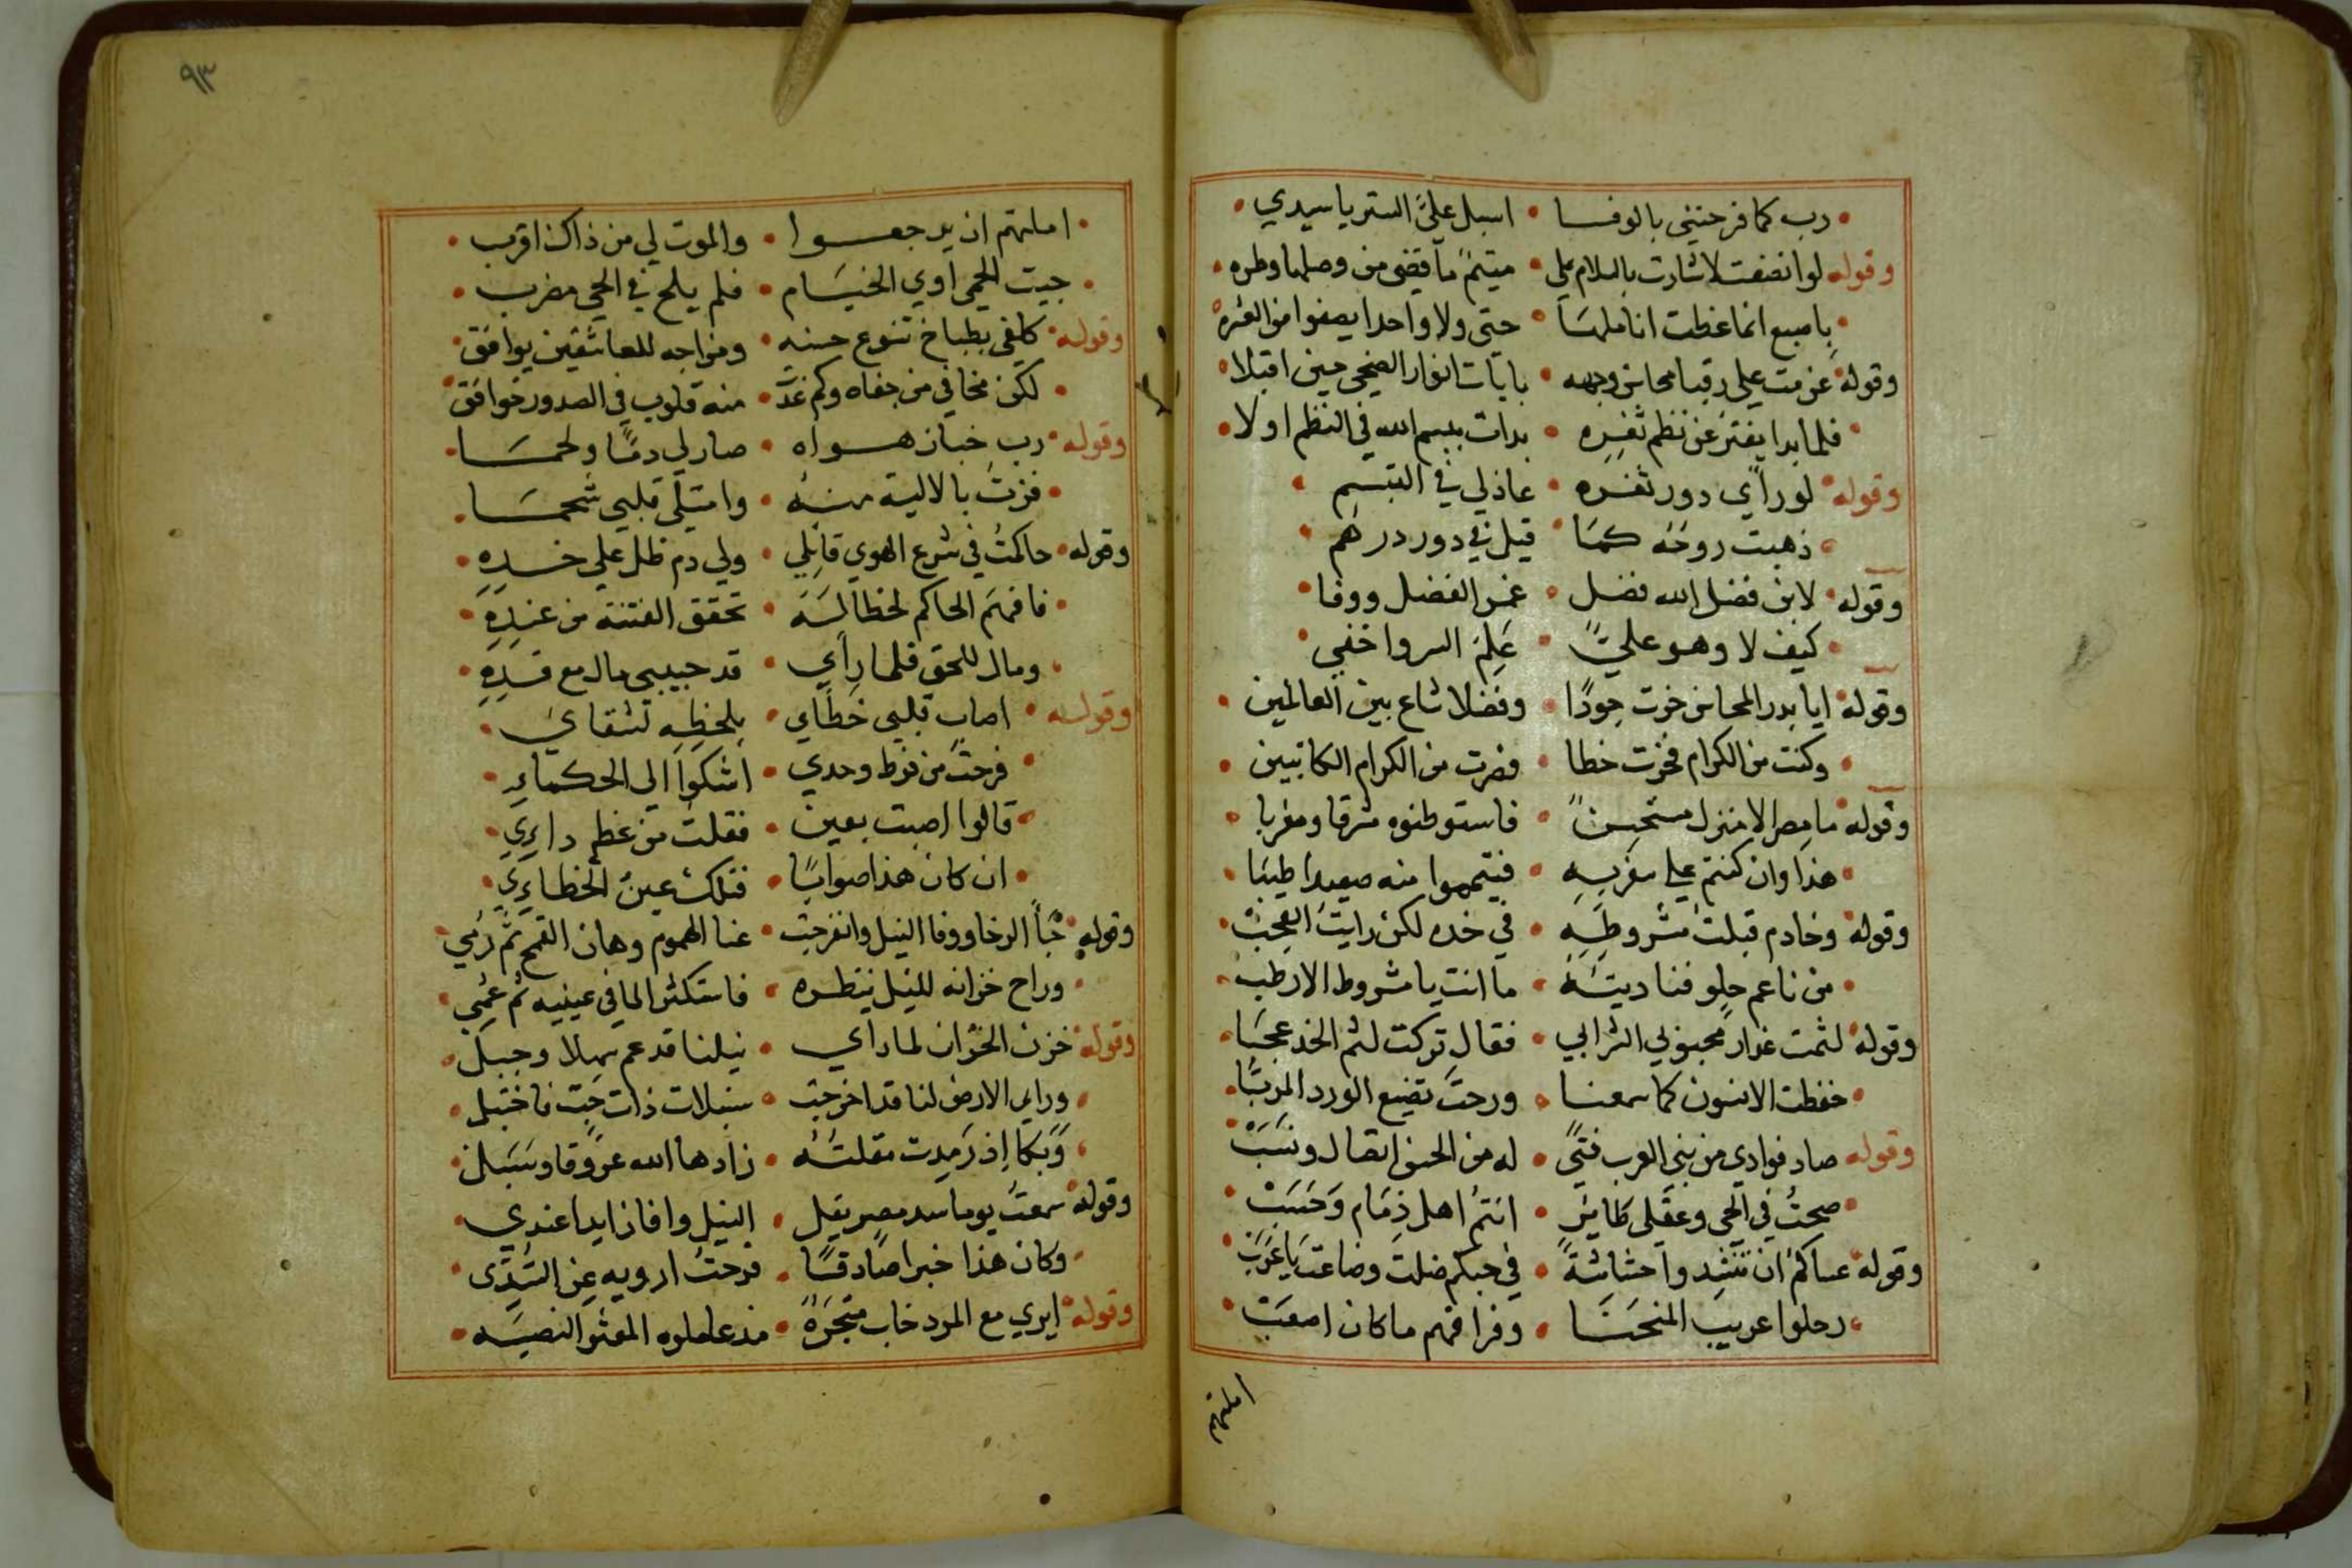 رب كما فرحتني بالوفا • اسبل عليَّ الستر يا سيدي
وقوله لو انصفت لاشارت بالسلام على • متيمً ما قضى من وصلها وطره
باصبع انما غطت اناملها • حتى ولا واحدا يصفوا من العشره
وقوله عزمت على رقيا محاسن وجهه • بايات انوار الضحى حين اقبلا
فلما بدا يفتر عن نظم ثغره • بدات ببسم الله في النظم اولا
وقوله لو راي دور ثغره • عاذلي في التبسم
ذهبت روحه كما • قيل في دور درهم
وقوله لابن فضل الله فضل • غمر الفضل ووفا
كيف لا وهو عليٌّ • عَلِمَ السر واخفي
وقوله ايا بدر المحاسن حزت جودًا • وفضلا شاع بين العالمين
وكنت من الكرام فحزت خطا • فصرت من الكرام الكاتبين
وقوله ما مصر الا منزل مستحسنٌ • فاستوطنوه مشرقا ومغربا
هذا وان كنتم علي سفر به • فتيمموا منه صعيدا طيبا
وقوله وخادم قبلت مشروطه • في خده لكن رايت العجب
من ناعم حلو فناديته • ما انت يا مشروط الا رطب
وقوله لثمت عذار محبوبي الشرابي • فقال تركت لثم الخد عجبا
حفظت الانسون كما سمعنا • ورحت تضيع الورد المربا
وقوله صاد فوادي من بني العرب فتيً • له من الحسن اتصال ونسب
صحتُ في الحي وعقلي طاير • انتم اهل ذِمَام وَحَسَبْ
وقوله عساكم ان تنشدوا حشاشة • في حبكم ضلت وضاعت يا عَرَبْ
رحلوا عريب المنحنا • وفراقهم ما كان اصعب
املتهم
٩٣
املتهم ان يرجعوا • والموت لي من ذاك اقرب
جيت الحمي اوي الخيام • فلم يلح في الحي مضرب
وقوله كلفي بطباخ تنوع حسنه • ومزاجه للعاشقين يوافق
لكن مخافي من جفاه وكم غدت • منه قلوب في الصدور خوافق
وقوله رب خباز هواه • صار لي دمًا ولحما
فزت بالالية منه • وامتلى قلبي شحما
وقوله حاكمتُ في شرع الهوي قاتلي • ولي دم ظل علي خده
فافهمَ الحاكم لحظا له • تحقق الفتنة من عنده
ومال للحق فلما راي • قد حبيبي مال مع قده
وقوله اصاب قلبي خطاي • بلحظه لشقاي
فرحت من فرط وجدي • اشكوا الي الحكماء
قالوا اصبت بعين • فقلت من عظم داءي
ان كان هذا صوابًا • فتلك عين الخطاءي
وقوله جا الرخا ووفا النيل وانفرجت • عنا الهموم وهان القمح ثم رُمي
وراح خزانه للنيل ينظره • فاستكثر الما في عينيه ثم عُمي
وقوله خزن الخزان لما راي • نيلنا قد عم سهلا وجبل
وراي الارض لنا قد اخرجت • سنبلات ذات حب فاختبل
وَبكا اِذ رَمِدت مقلتُه • زادها الله عروقا وسَبَل
وقوله سمعتُ يوما سد مصر يقل • النيل وافا زايدا عندي
وكان هذا خبرا صادقًا • فرحتُ ارويه عن السُّدِّى
وقوله ايري مع المرد خاب متجرَهُ • مذ عاملوه المعشر النصيه